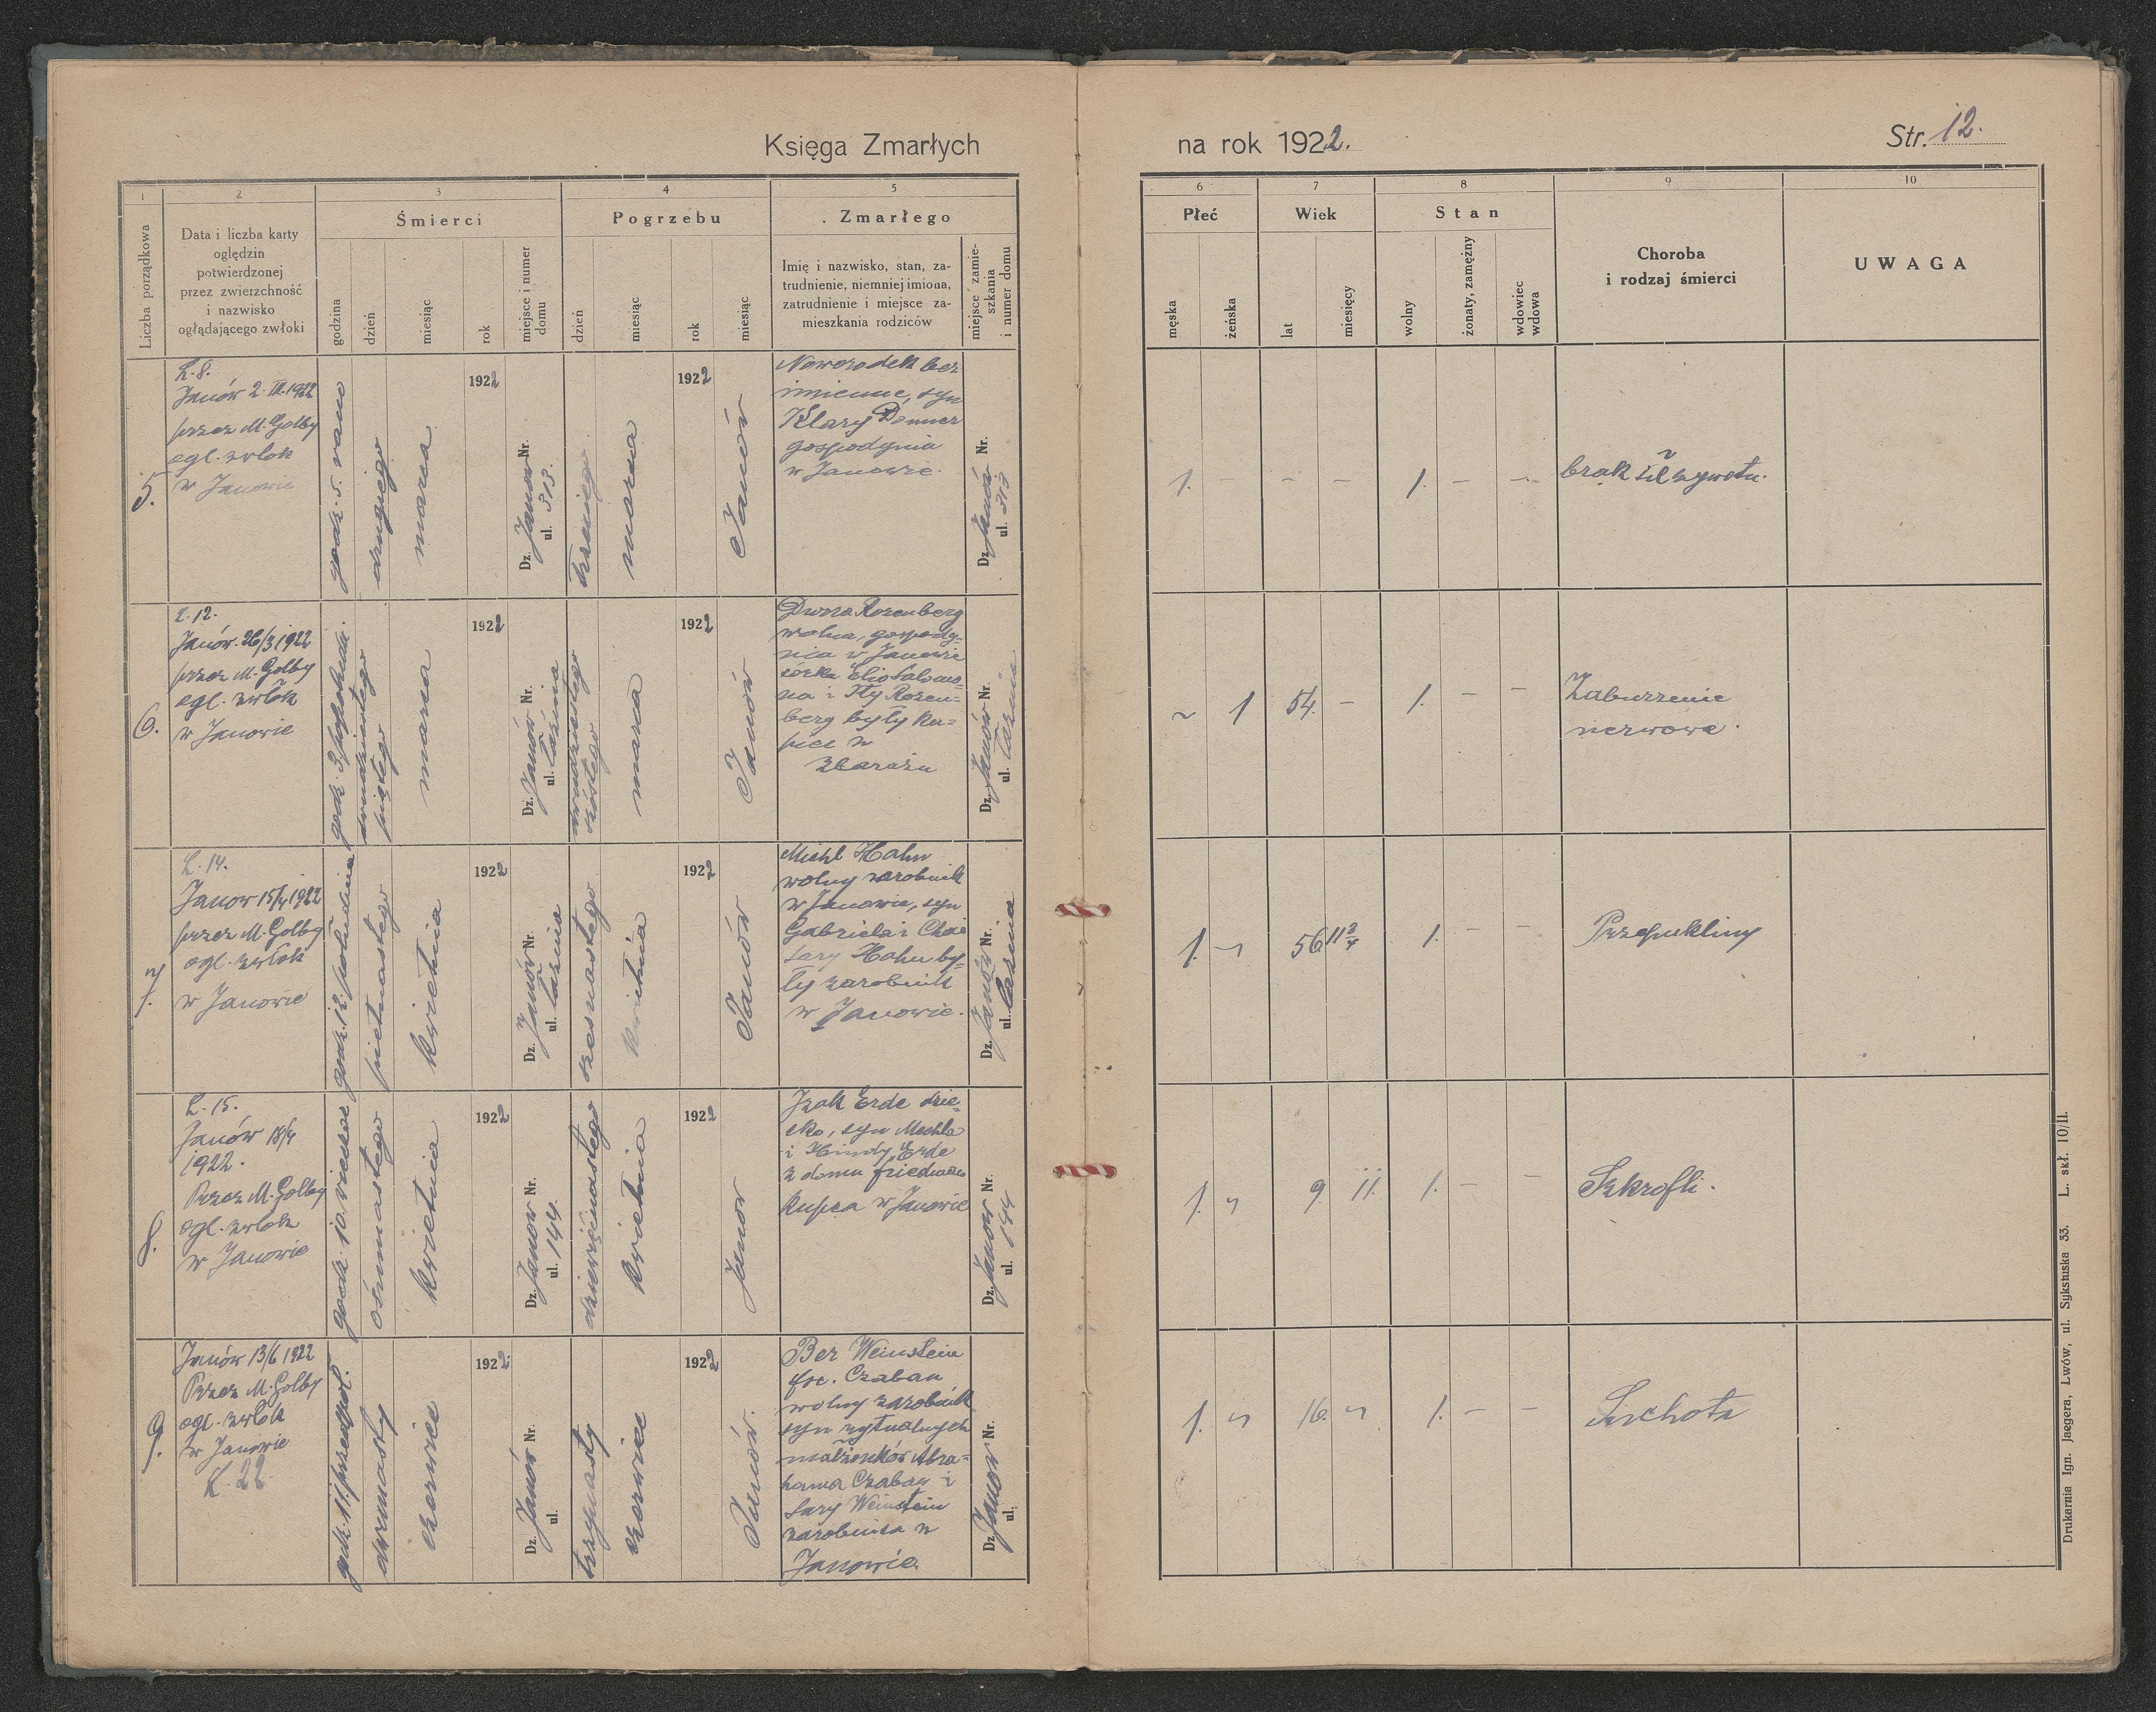 Księga Zmarłych
na rok 1922.
Str. 12.
1
2
3
4
5
6
7
8
9
10
Liczba porządkowa
Data i liczba karty
oględzin
potwierdzonej
przez zwierzchność
i nazwisko
oglądającego zwłoki
Śmierci
godzina
dzień
miesiąc
rok
miejsce i numer
domu
Pogrzebu
dzień
miesiąc
rok
miesiąc
Zmarłego
Imię i nazwisko, stan, za-
trudnienie, niemniej imiona,
zatrudnienie i miejsce za-
mieszkania rodziców
miejsce zamie-
szkania
i numer domu
Płeć
męska
żeńska
Wiek
lat
miesięcy
Stan
wolny
żonaty, zamężny
wdowiec
wdowa
Choroba
i rodzaj śmierci
UWAGA
5.
L. 8.
Janów 2. III. 1922
przez M. Golby
ogl. zwłok
w Janowie
godz. 5. rano
drugiego
marca
1922
Dz. Janów Nr.
ul. 313.
trzeciego
marca
1922
Janów
Noworodek bez
imienne, syn
Klary Donner
gospodynia
w Janowie.
Dz. Janów Nr.
ul. 313
1. - - - 1. - -
brak sił żywotn.
6.
L. 12.
Janów. 26/3 1922
przez M. Golby
ogl. zwłok
w Janowie
godz. 3 popołudn.
dwudziestego
piątego
marca
1922
Dz. Janów Nr.
ul. Łazienna
dwudziestego
szóstego
marca
1922
Janów
Dwora Rosenberg
wolna, gospody-
nica w Janowie
córka Elio Salomo-
na i Ity Rosen-
berg były ku-
piec w
Zbarażu
Dz. Janów Nr.
ul.
~ 1 54. - 1. - -
Zaburzenie
nerwowe.
7.
L. 14.
Janow 15/4 1922
przez M. Golby
ogl. zwłok
w Janowie
godz. 12. południa
pietnastego
kwietnia
1922
Dz. Janów Nr.
ul. Łazienna
szesnastego
kwietnia
1922
Janów
Michl Hahn
wolny zarobnik
w Janowie, syn
Gabriela i Chai
Sary Hahn by-
ły zarobnik
w Janowie.
Dz. Janów Nr.
ul.
1. ~ 56 11 3/4 1. - -
Przepukliny
8.
L. 15.
Janów 18/4
1922.
Przez M. Golby
ogl. zwłok
w Janowie
godz. 10. wieczor
ośmnastego
kwietnia
1922
Dz. Janow Nr.
ul. 144.
dziewiętnastego
kwietnia
1922
Janow
Izak Erde dzie-
cko, syn Mechla
i Hindy Erde
z domu Friedmann
kupca w Janowie
Dz. Janow Nr.
ul. 144
1. ~ 9. 11. 1. - -
Szkrofli.
9.
Janów 13/6 1922
Przez M. Golby
ogl. zwłok
w Janowie
L. 22.
godz. 11. przedpoł.
dwunasty
czerwiec
1922.
Dz. Janów Nr.
ul.
trzynasty
czerwiec
1922
Janów.
Ber Weinstein
Czaban
wolny zarobnik
syn rytualnych
małżonków Abra-
hama Czaban i
Sary Weinstein
zarobnica w
Janowie.
Dz. Janow Nr.
ul.
1. ~ 16. ~ 1. - -
Suchota
Drukarnia Ign. Jaegera, Lwów, ul. Sykstuska 33. L. skł. 10/II.